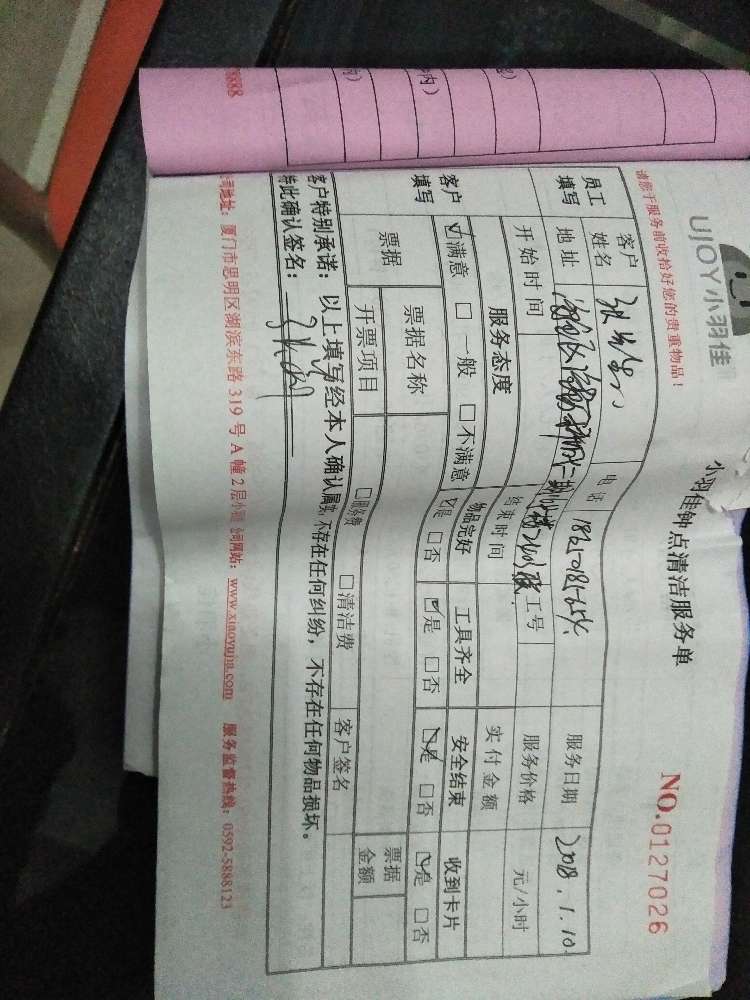 UJOY小羽佳
小羽佳钟点清洁服务单
NO.0127026
请您于服务前收拾好您的贵重物品！
员工填写 客户姓名 电话 服务日期 2018.1.10
地址 工号 服务价格 元/小时
开始时间 结束时间 实付金额
客户填写 服务态度 物品完好 工具齐全 安全结束 收到卡片
☑满意 □一般 □不满意 ☑是 □否 ☑是 □否 ☑是 □否 ☑是 □否
票据 票据名称 票据金额
开票项目 □服务费 □清洁费 客户签名
客户特别承诺：以上填写经本人确认属实，不存在任何纠纷，不存在任何物品损坏。
特此确认签名：
公司地址：厦门市思明区湖滨东路319号A幢2层 公司网站：www.xiaoyujia.com 服务监督热线：0592-5888123
8888
内）